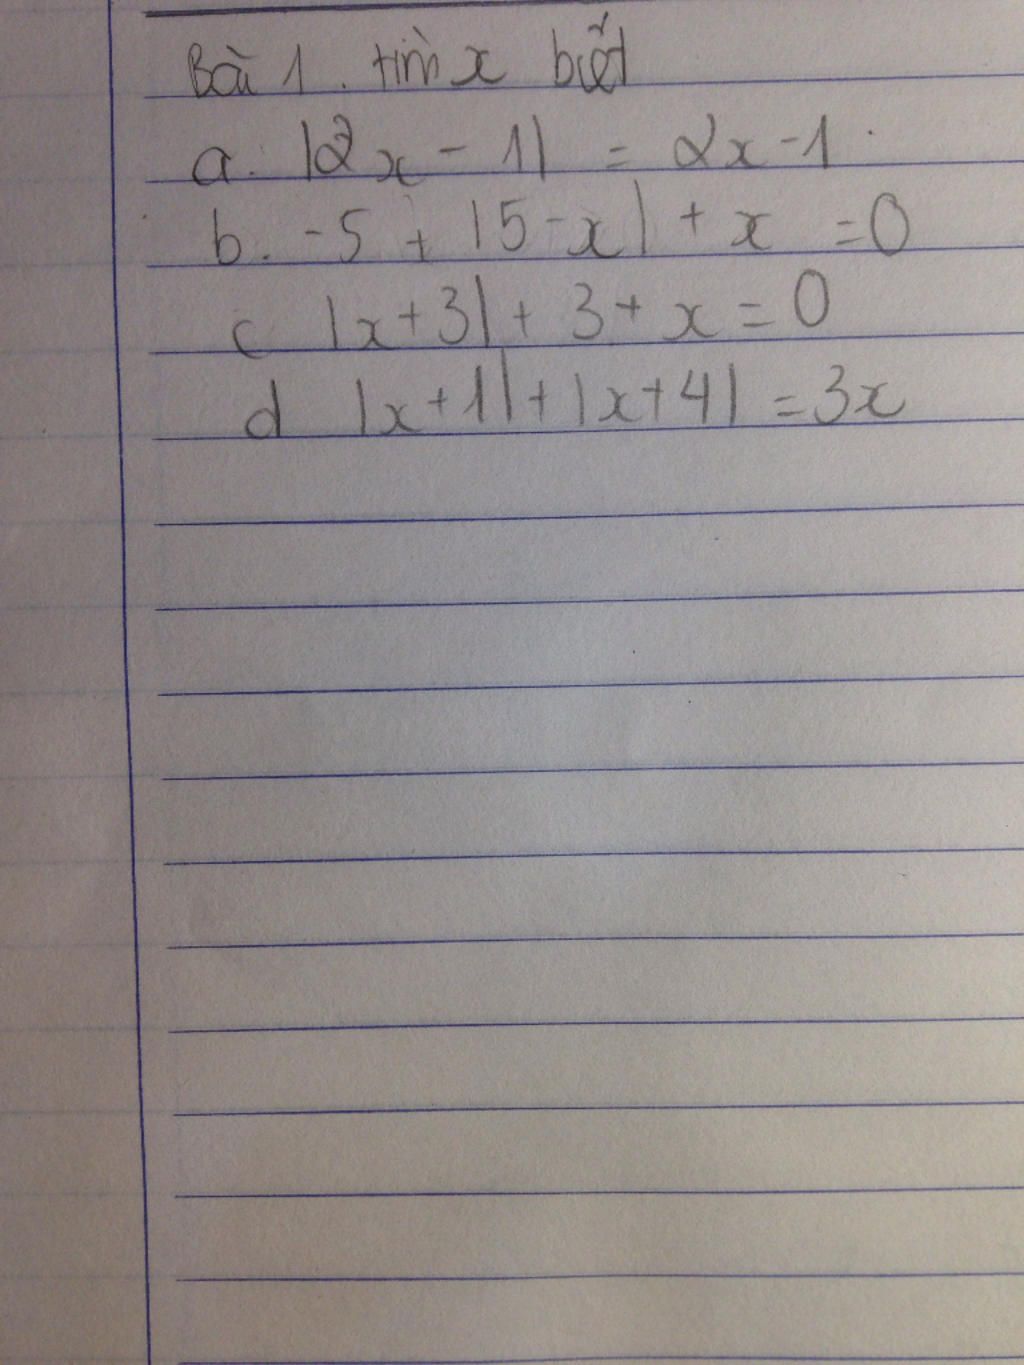 Bài 1. tìm x biết
a. |2x - 1| = 2x - 1
b. -5 + |5 - x| + x = 0
c |x + 3| + 3 + x = 0
d |x + 1| + |x + 4| = 3x